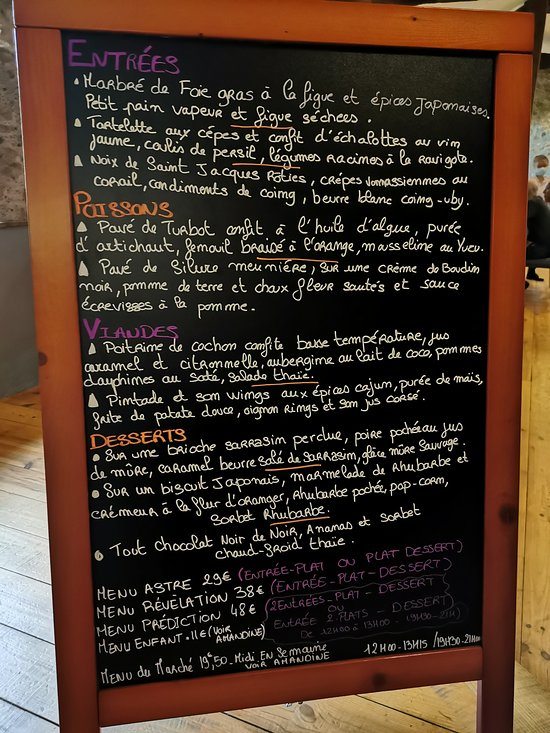 ENTRÉES
Marbré de Foie gras à la figue et épices Japonaises.
Petit pain vapeur et figue séchées.
Tartelette aux cépes et confit d'échalottes au vin
jaune, coulis de persil, légumes racines à la ravigote.
Noix de Saint Jacques Roties, crêpes vonnassiennes au
corail, condiments de coing, beurre blanc coing-yuzu.
POISSONS
Pavé de Turbot confit à l'huile d'algue, purée
d'artichaut, fenouil braisé à l'orange, mousseline au Yuzu.
Pavé de Silure meunière, sur une crème de Boudin
noir, pomme de terre et choux fleur sautés et sauce
écrevisses à la pomme.
VIANDES
Poitrine de cochon confite basse température, jus
caramel et citronnelle, aubergine au lait de coco, pommes
dauphines au saté, salade thaïe.
Pintade et son wings aux épices cajun, purée de maïs,
frite de patate douce, oignon rings et son jus corsé.
DESSERTS
Sur une brioche sarrasin perdue, poire pochée au jus
de mûre, caramel beurre salé de sarrasin, glace mûre Sauvage.
Sur un biscuit Japonais, marmelade de Rhubarbe et
crémeux à la fleur d'oranger, Rhubarbe pochée, pop-corn,
Sorbet Rhubarbe.
Tout chocolat Noir de Noir, Ananas et sorbet
chaud-froid thaïe.
MENU ASTRE 29€ (ENTRÉE-PLAT OU PLAT DESSERT)
MENU RÉVÉLATION 38€ (ENTRÉE-PLAT-DESSERT)
MENU PRÉDICTION 48€ (2 ENTRÉES-PLAT-DESSERT
OU
ENTRÉE 2 PLATS-DESSERT)
MENU ENFANT.11€ (VOIR AMANDINE)
De 12H00 à 13H00 - 19H30-21H)
MENU du Marché 19€,50. Midi EN Semaine
VOIR AMANDINE
12H00-13H15 / 19H30-21H00